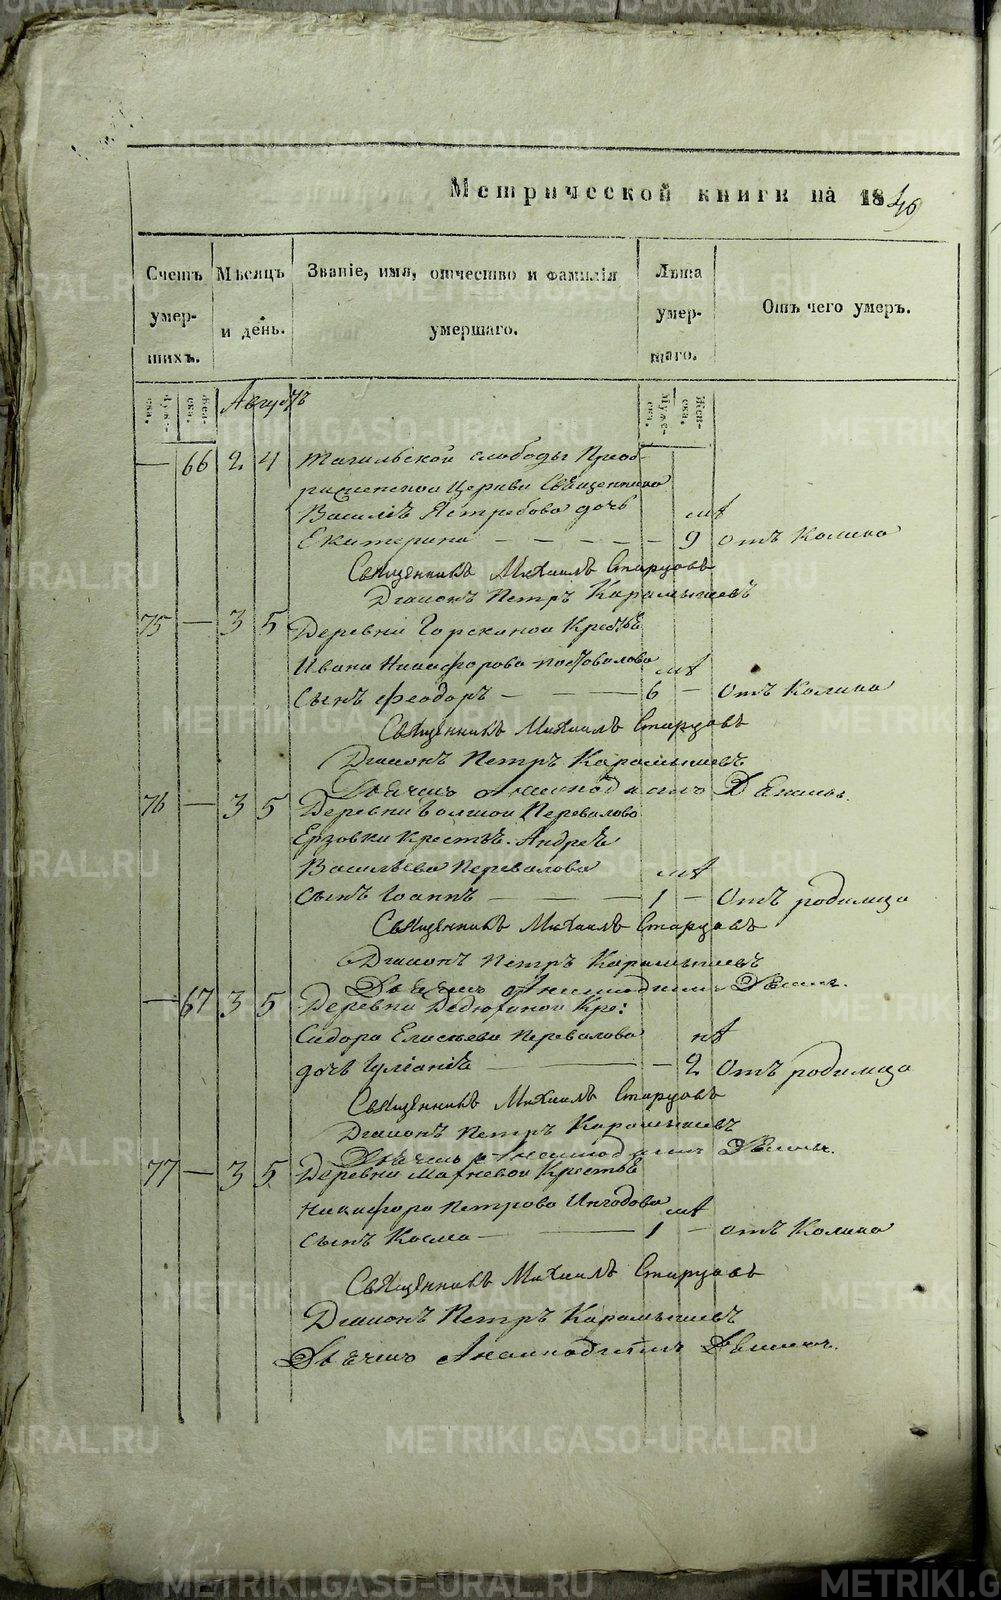 Метрической книги на 1840
Счетъ умер- шихъ.
Мѣсяцъ и день.
Званіе, имя, отчество и фамилія умершаго.
Лѣта умер- шаго.
Отъ чего умеръ.
Муже- ска.
Жен- ска.
Августъ
Муже- ска.
Жен- ска.
— 66 2 4 Тагильской слободы Преоб-
раженской Церкви Священника
Василія Ястребова дочь
Екатерина — — — — — 9 отъ Колика
Священникъ Михаилъ Старцовъ
Діаконъ Петръ Карамышевъ
75 — 3 5 Деревни Горскиной Крестья:
Ивана Никифорова Постовалова
сынъ Феодоръ — — — 6 — отъ Колика
Священникъ Михаилъ Старцовъ
Діаконъ Петръ Карамышевъ
Дьячекъ
76 — 3 5 Деревни Перевалово
Ерзовки крестья. Андрея
Васильева Перевалова
сынъ Іоаннъ — — — 1 — Отъ родимца
Священникъ Михаилъ Старцовъ
Діаконъ Петръ Карамышевъ
Дьячекъ
— 67 3 5 Деревни Дедюхиной Кре:
Сидора Елисѣева Перевалова
дочь Іуліанія — — — 2 Отъ родимца
Священникъ Михаилъ Старцовъ
Діаконъ Петръ Карамышевъ
Дьячекъ
77 — 3 5 Деревни Махневой Крестья
Никифора Петрова
сынъ Косма — — 1 — отъ Колика
Священникъ Михаилъ Старцовъ
Діаконъ Петръ Карамышевъ
Дьячекъ
METRIKI.GASO-URAL.RU